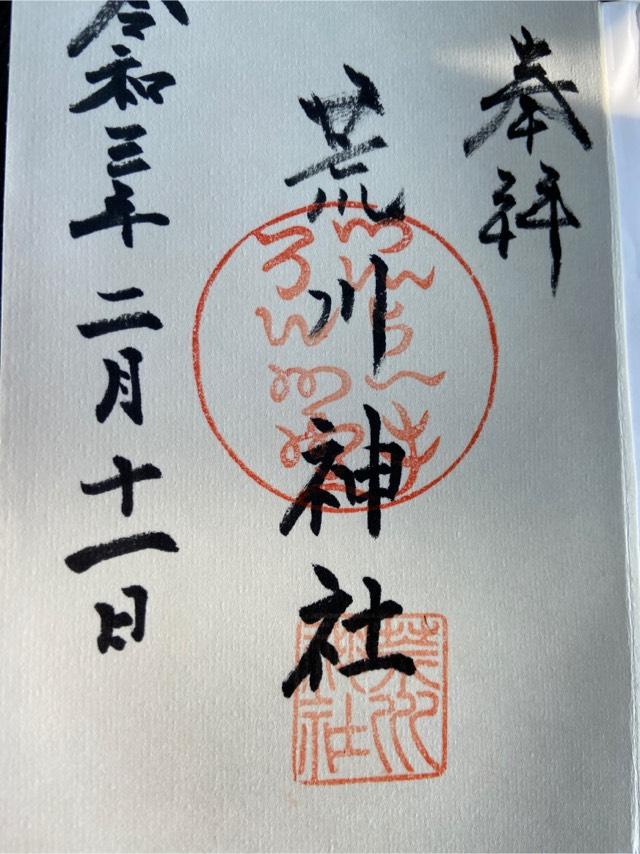 奉拝
荒川神社
令和三年二月十一日
荒川神社